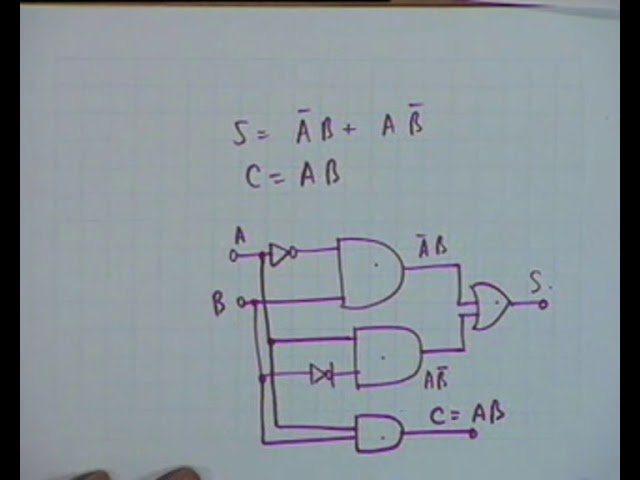 S = A̅ B + A B̅
C = A B
A
A̅ B
B
S.
A B̅
C = AB